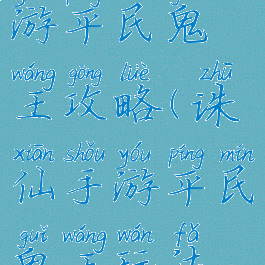 游平民鬼
wáng gōng lüè zhū
王攻略(诛
xiān shǒu yóu píng mín
仙手游平民
guǐ wáng wán fǎ
鬼王玩法